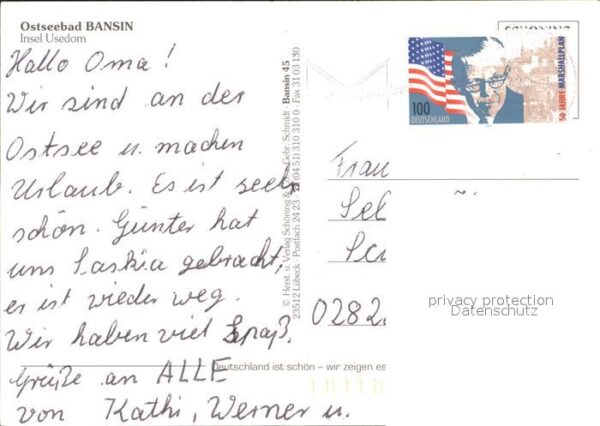 Ostseebad BANSIN
Insel Usedom
Hallo Oma!
Wir sind an der
Ostsee u. machen
Urlaub. Es ist sehr
schön. Günter hat
uns Saskia gebracht,
er ist wieder weg.
Wir haben viel Spaß.
Grüße an ALLE
von Kathi, Werner u.
Bansin 45
© Herst. u. Verlag Schöning & Gebr. Schmidt
23512 Lübeck · Postfach 24 23 · (04 51) 310 310 0 · Fax 31 03 130
Deutschland ist schön – wir zeigen es
100
DEUTSCHLAND
50 JAHRE MARSHALLPLAN
Frau
Sel
0282
privacy protection
Datenschutz